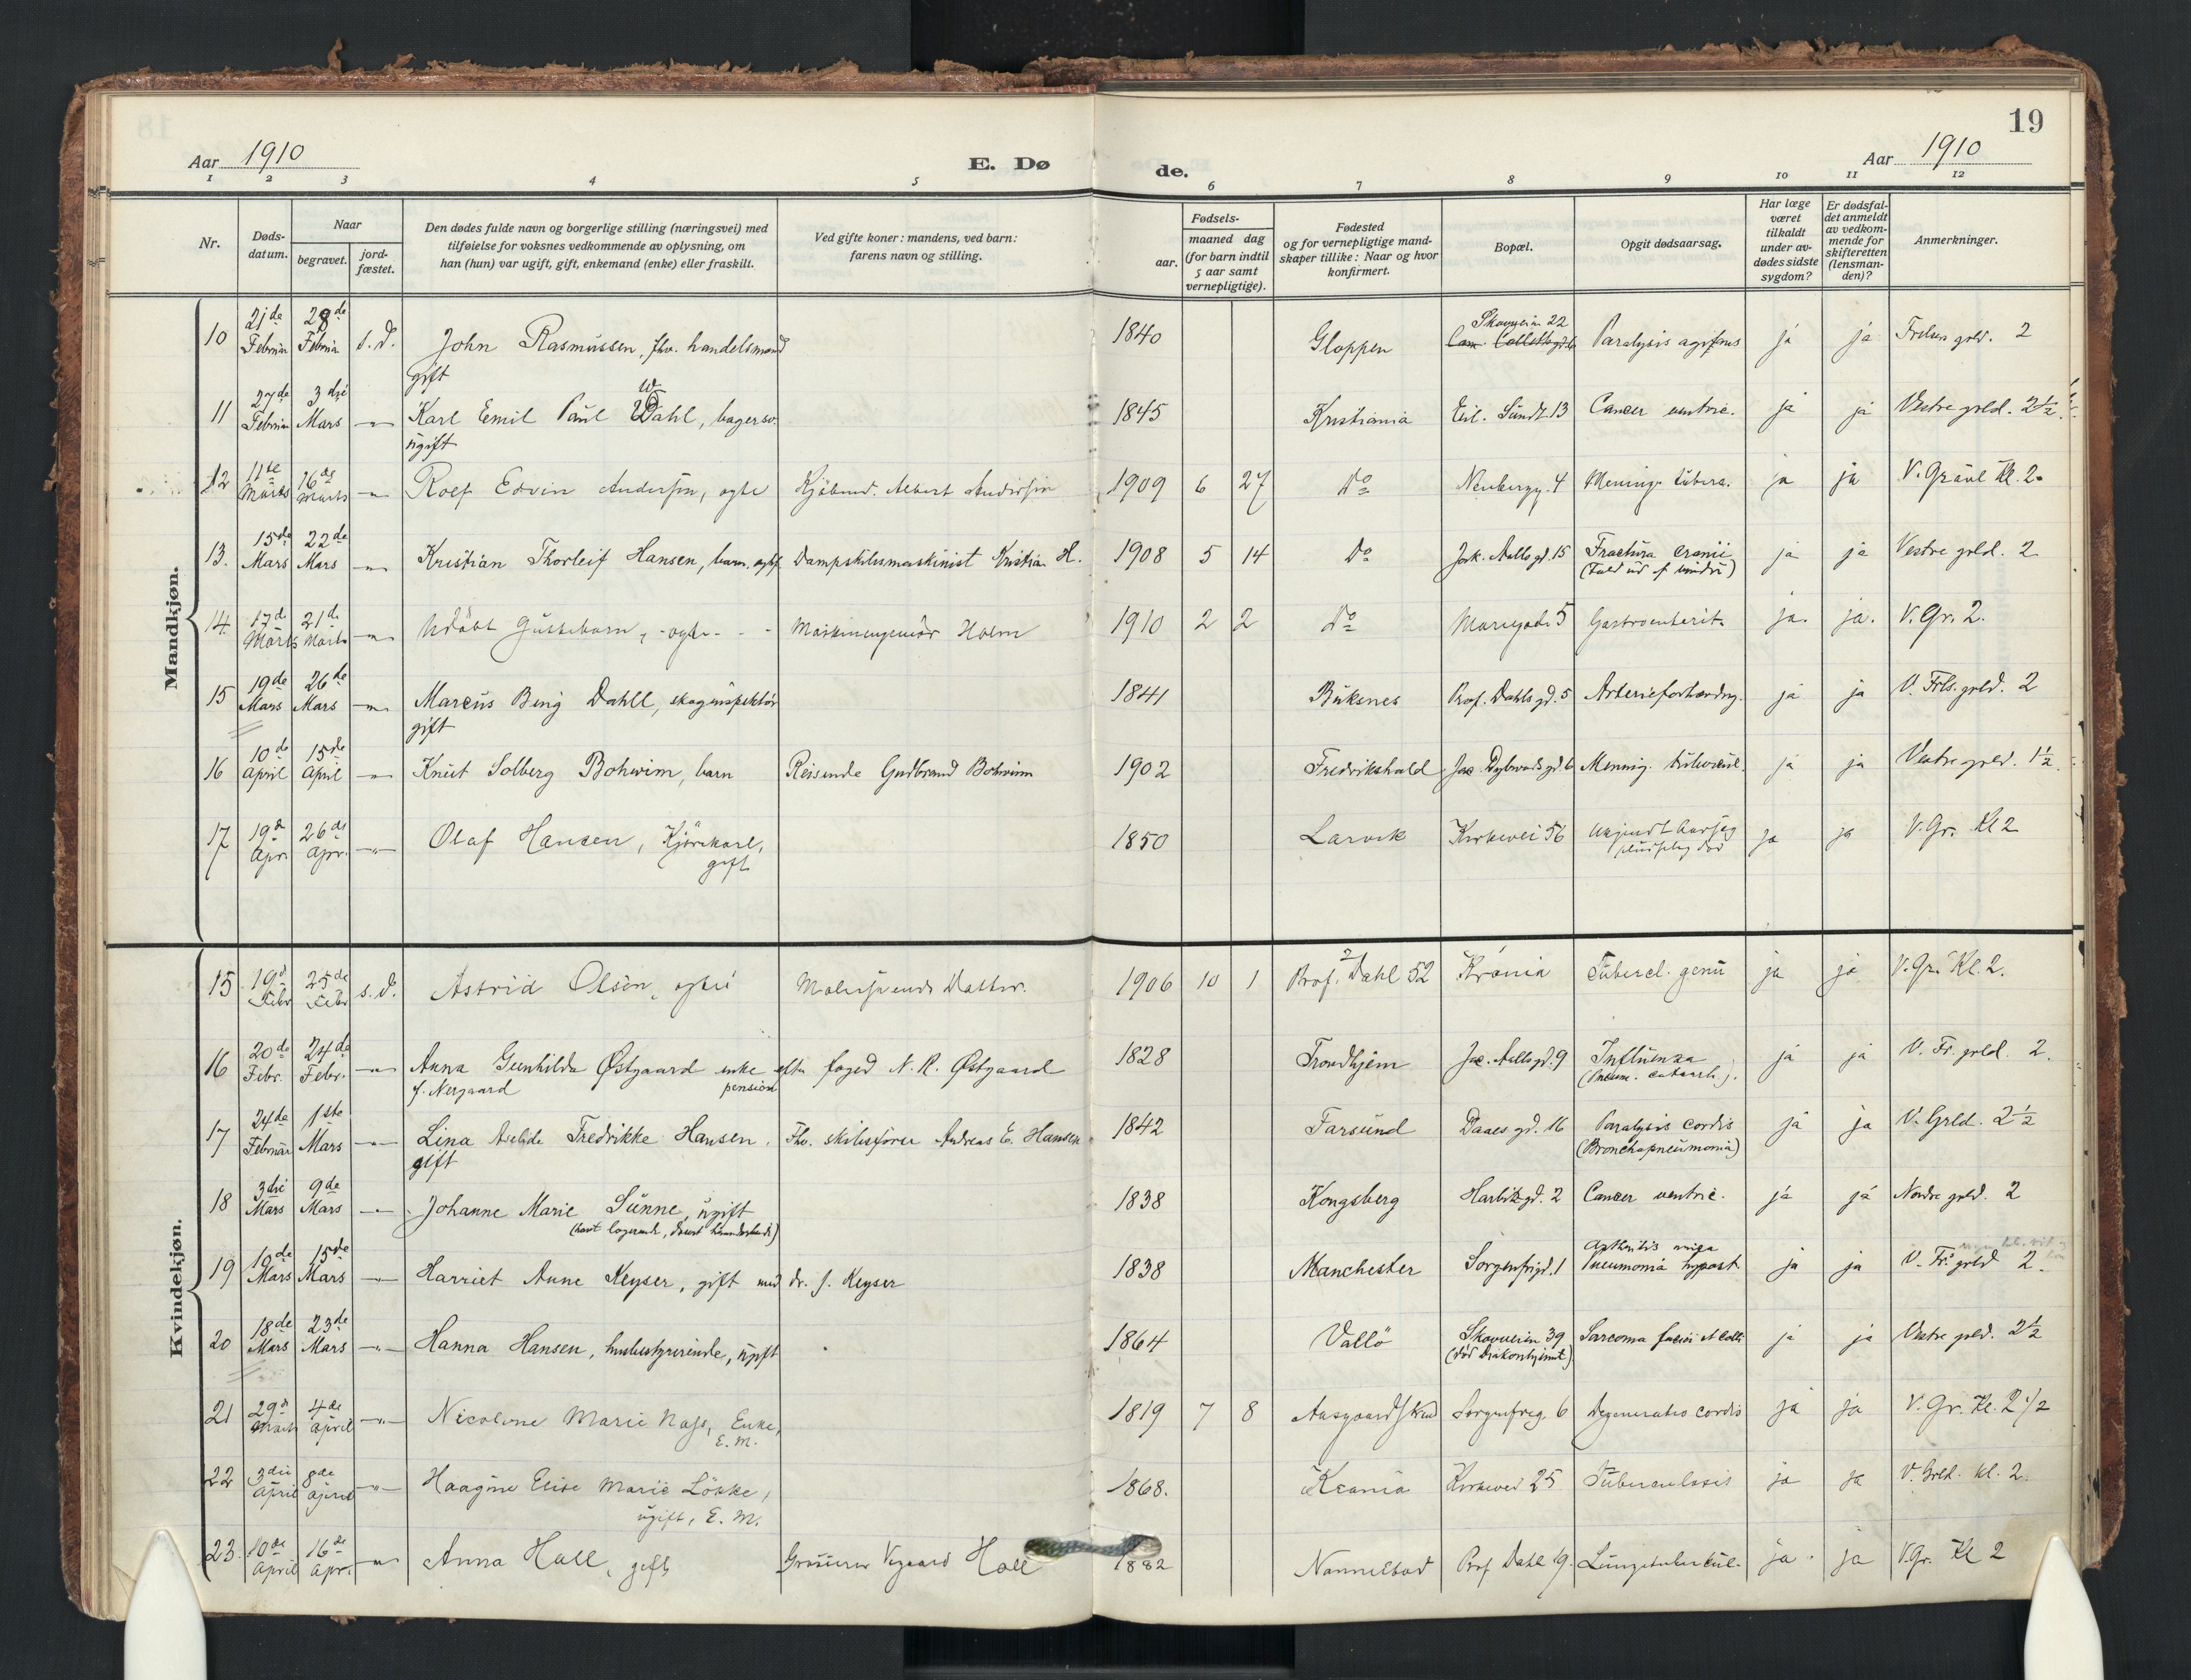 19
Aar 1910
E. Dø
de.
Aar 1910
1 2 3 4 5 6 7 8 9 10 11 12
Nr.
Døds-
datum.
Naar
begravet.
jord-
fæstet.
Den dødes fulde navn og borgerlige stilling (næringsvei) med
tilføielse for voksnes vedkommende av oplysning, om
han (hun) var ugift, gift, enkemand (enke) eller fraskilt.
Ved gifte koner: mandens, ved barn:
farens navn og stilling.
Fødsels-
aar.
maaned dag
(for barn indtil
5 aar samt
vernepligtige).
Fødested
og for vernepligtige mand-
skaper tillike: Naar og hvor
konfirmert.
Bopæl.
Opgit dødsaarsag.
Har læge
været
tilkaldt
under av-
dødes sidste
sygdom?
Er dødsfal-
det anmeldt
av vedkom-
mende for
skifteretten
(lensman-
den)?
Anmerkninger.
Mandkjøn.
10 21de Februar 28de Februar s.d. John Rasmussen, fhv. handelsmand 1840 Gloppen Skovveien 22 Paralysis agitans ja ja Frelsers grld. 2
gift
11 27de Februar 3die Mars -"- Karl Emil Paul Wahl, bagersv. 1845 Kristiania Eil. Sundt. 13 Cancer ventric. ja ja Vestre grld. 2½
ugift
12 11te Marts 16de Marts -"- Rolf Edvin Andersen, egte Kjøbmd. Albert Andersen 1909 6 27 Do Neubergg. 4 Mening. tuberc. ja ja V. Gravl Kl. 2.
13. 15de Mars 22de Mars -"- Kristian Thorleif Hansen, barn, egtef. Dampskibsmaskinist Kristian H. 1908 5 14 Do Jak. Aalls gd. 15 Fractura cranii ja ja Vestre grld. 2
(Fald ud af vindu)
14. 17de Marts 21de Marts -"- Udøbt Guttebarn, - egte - - Maskiningeniør Holm 1910 2 2 Do Mariegade 5 Gastroenterit. ja. ja. V. Gr. 2.
15 19de Mars 26de Mars -"- Marcus Bing Dahll, skoginspektør 1841 Buksnes Prof. Dahls gd. 5 Arterieforkardng. ja ja V. Frls. grld. 2
gift
16 10de April 15de April -"- Knut Solberg Bohwim, barn Reisende Gudbrand Bohwim 1902 Fredrikshald Jac. Dybwads gd 6 Mening. tubercul. ja ja Vestre grld. 1½
17 19de Apr. 26de Apr. -"- Olaf Hansen, Kjørekarl, 1850 Larvik Kirkevei 56 ja ja V. Gr. Kl 2
gift
Kvindekjøn.
15 19d Febr 25de Febr s.d. Astrid Olsen, egte Malersvends Datter. 1906 10 1 Prof. Dahl 52 Krania Tubercl. genu ja ja V. Gr. Kl. 2.
16 20de Febr. 24de Febr. -"- Anna Gunhilda Østgaard enke efter foged N. R. Østgaard 1828 Trondhjem Jac. Aalls gd. 9 Influenza ja ja V. Fr. grld. 2.
f. Nergaard pension (Pneum. catarrh.).
17 24de Februar 1ste Mars -"- Lina Fredrikke Hansen, Fhv. skibsfører Andreas E. Hansen 1842 Farsund Daaes gd. 16 Paralysis cordis ja ja V. Grld. 2½
gift (Bronchopneumonia)
18 3die Mars 9de Mars -"- Johanne Marie Sunne, ugift 1838 Kongsberg Harbitz gd. 2 Cancer ventric. ja ja Nordre grld. 2
19 10de Mars 15de Mars -"- Harriet Anne Keyser, gift med dr. J. Keyser 1838 Manchester Sorgenfrigd. 1 Arthritis Pneumonia hypost. ja ja V. Fr. grld 2.
20 18de Mars 23de Mars -"- Hanna Hansen, husbestyrerinde, ugift 1864 Vallö Skovveien 39 Sarcoma faciei et colli ja ja Vestre grld. 2½
(død Diakonhjemmet)
21 29de Marts 4de April -"- Nicoline Marie Nass, Enke, 1819 7 8 Aasgaardstrand Sorgenfrig. 6 Degeneratio cordis ja ja V. Gr. Kl. 2 1/2
E. M.
22 3die April 8de April -"- Haagine Elise Marie Lökke, 1868. Krania Kirkevei 25 Tuberculosis ja ja V. Grld. kl. 2.
ugift, E. M.
23. 10de April 16de Apr. -"- Anna Hall, gift Grosserer Vegaard Hall 1882 Nannestad Prof Dahl 19. Lungetubercul. ja ja V.Gr. Kl 2